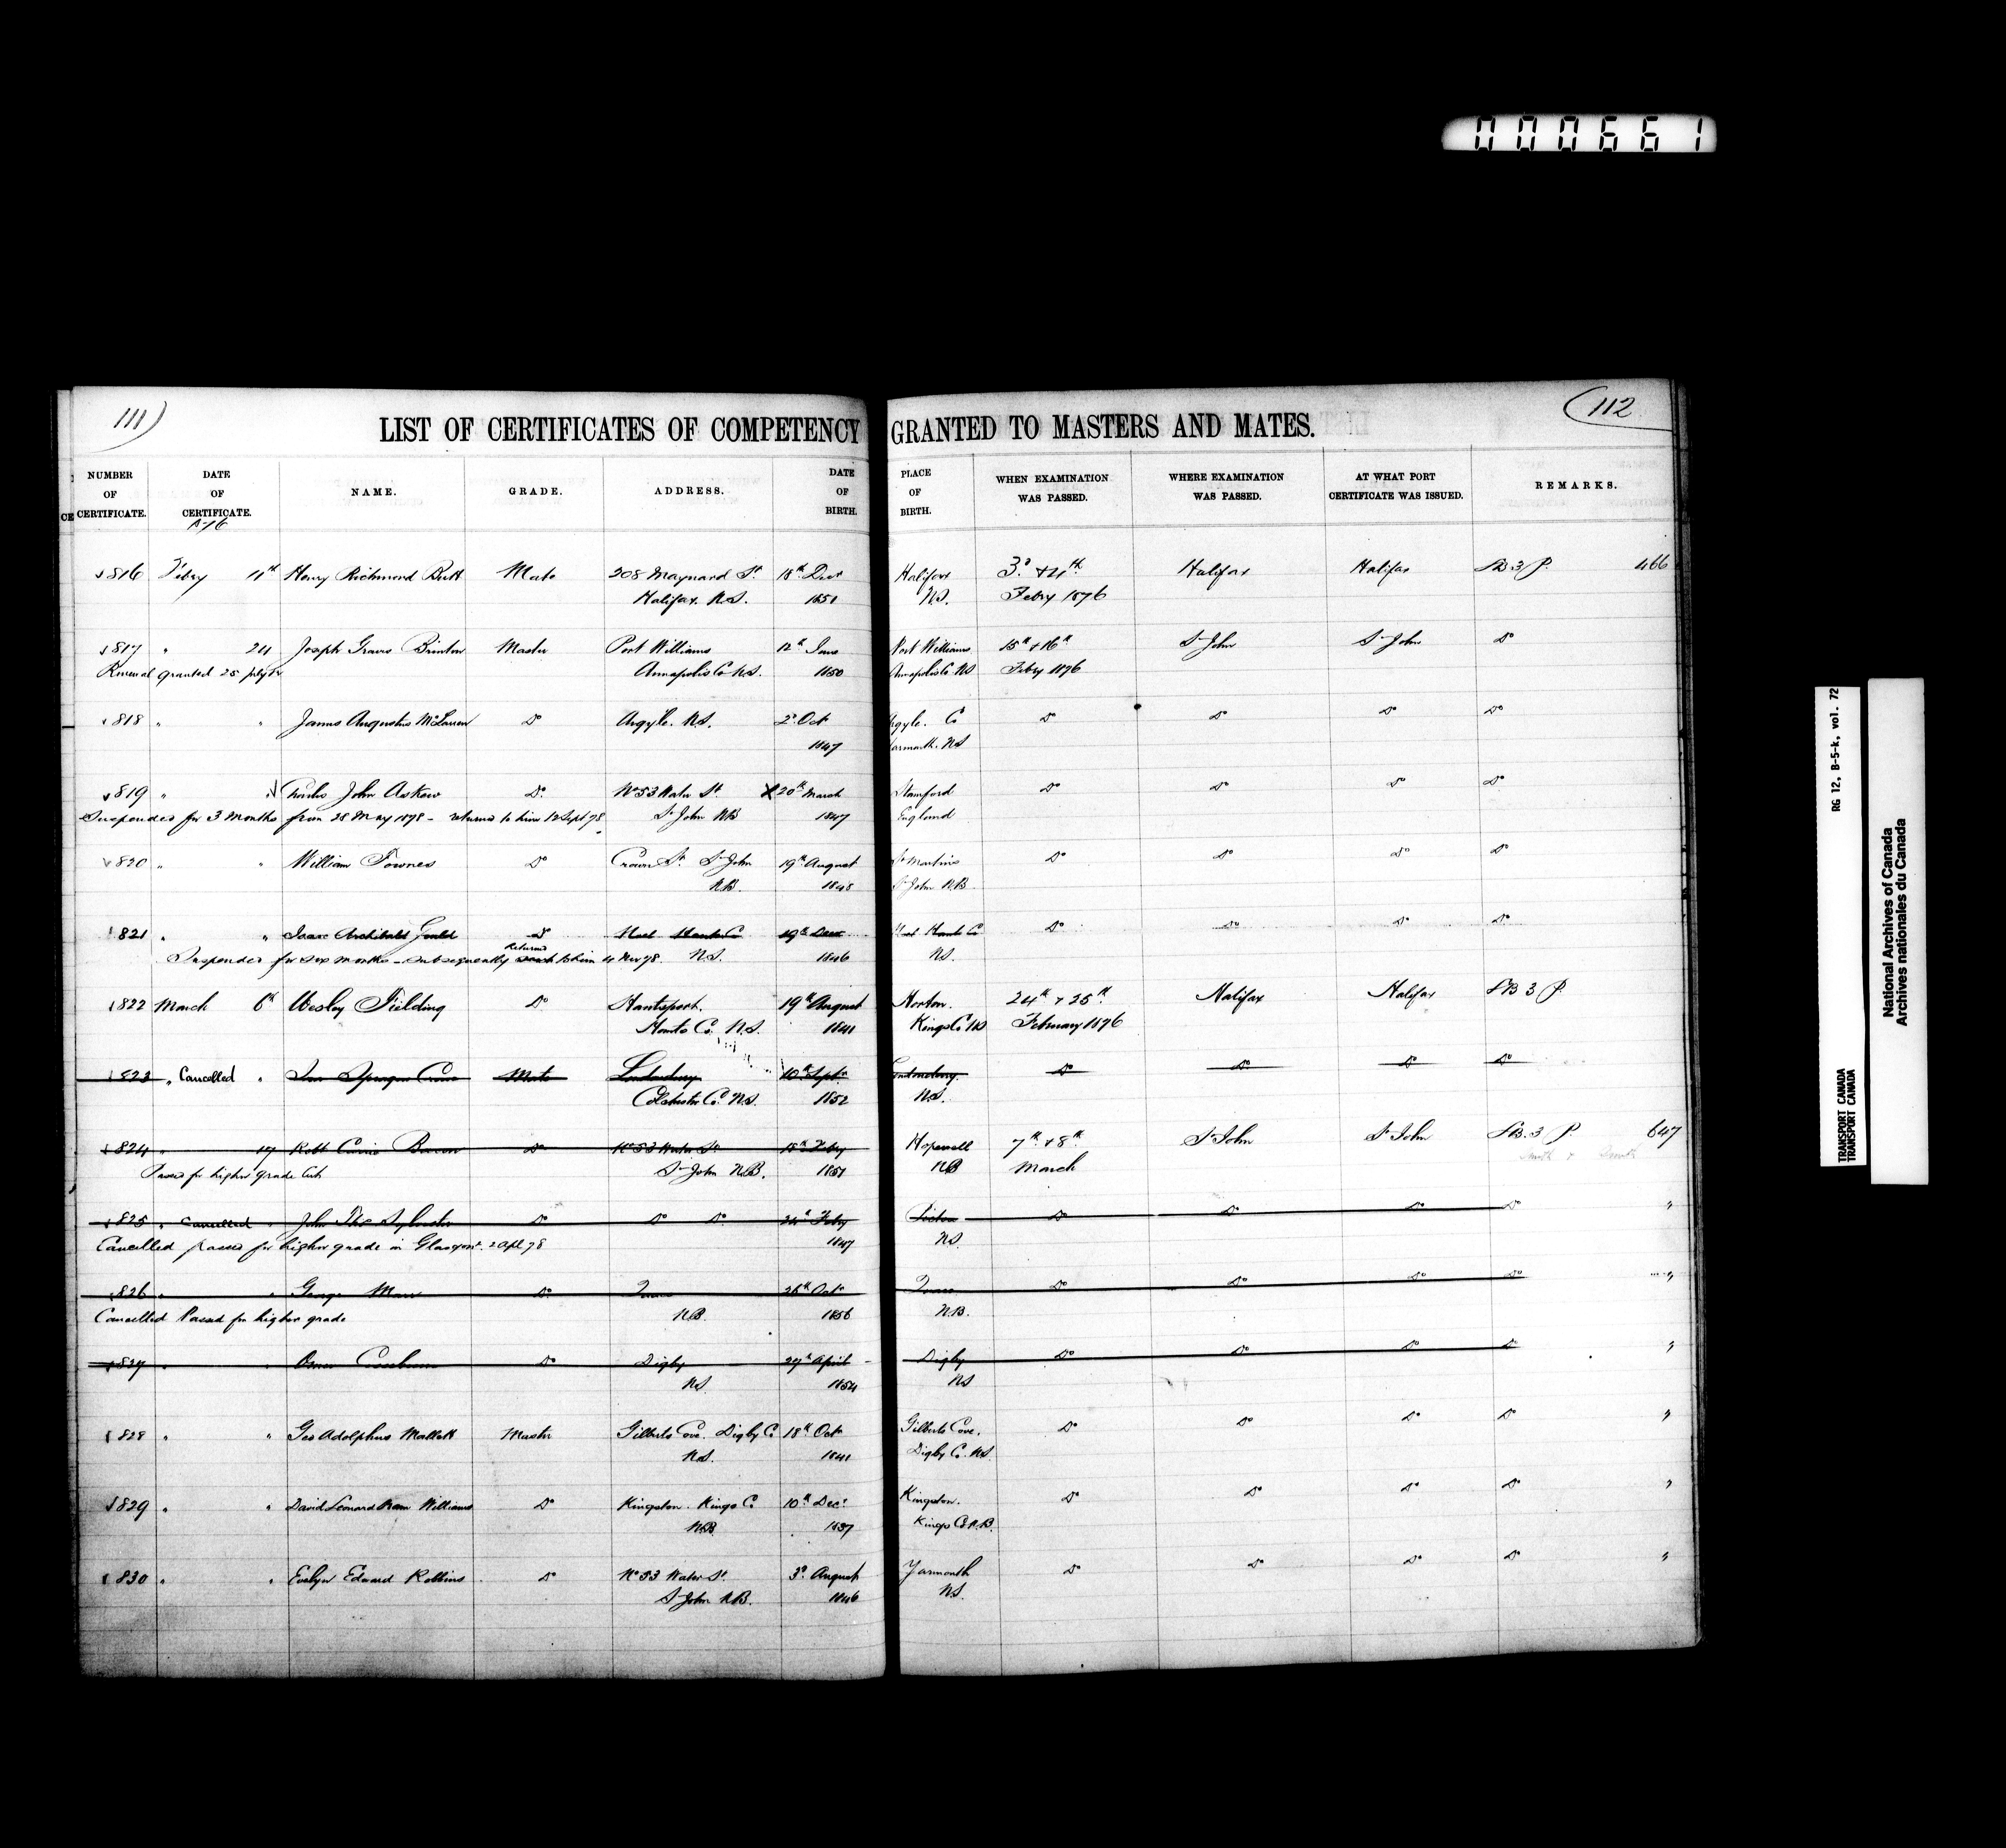 000661
111) LIST OF CERTIFICATES OF COMPETENCY GRANTED TO MASTERS AND MATES. (112
NUMBER OF CERTIFICATE. DATE OF CERTIFICATE. NAME. GRADE. ADDRESS. DATE OF BIRTH. PLACE OF BIRTH. WHEN EXAMINATION WAS PASSED. WHERE EXAMINATION WAS PASSED. AT WHAT PORT CERTIFICATE WAS ISSUED. REMARKS.
816 Febry 11th Henry Richmond Butt Mate 208 Maynard St. 18th Decr Halifax 3d & 4th Halifax Halifax S.B. 3 P. 466
Halifax. N.S. 1851 N.S. Febry 1876
817 " 24 Joseph Graves Brinton Master Port Williams 12th Port Williams 15th & 16th St John St John Do
Renewal granted 25 Annapolis Co N.S. 1850 Annapolis Co. NS Febry 1876
818 " " James Augustus McLaren Do Argyle. N.S. 2d Oct Argyle. Co Do Do Do Do
1847 Yarmouth. NS
819 " Charles John Askew Do. No 53 Water St X 20th March Stamford Do Do Do Do
Suspended for 3 Months from 28 May 1878 - returned to him 12 Sept 78 St John NB 1847 England
820 " " William Townes Do Crown St. St John 19th August St Martins Do Do Do Do
N.B. 1848 St John N.B.
821 " " Isaac Archibald Do Noel Hants Co 19th Decr Noel Hants Co Do Do Do Do
Suspended for six months - subsequently returned to him 4 Nov 78. N.S. 1846 N.S.
822 March 6th Wesley Fielding Do Hantsport. 19th August Horton. 24th & 25th Halifax Halifax S.B 3 P.
Hants Co. N.S. 1841 Kings Co NS February 1876
823 " Cancelled " Sprague Mate Londonderry 10th Septr Londonderry. Do Do Do Do
Colchester Co. N.S. 1852 N.S.
824 " 17 Robt Do No 53 Water St. 18th Febry Hopewell 7th & 8th St John St John S.B. 3 P. 647
Passed for higher grade Cert St John N.B. 1851 NB March
825 " Cancelled " John Thos Sylvester Do Do Do 24th Febry Pictou Do Do Do Do "
Cancelled passed for higher grade in Glasgow. 2 Apl 78 1847 N.S.
826 " " George Do 26th Oct Do Do Do Do "
Cancelled Passed for higher grade N.B. 1856 N.B.
827 " " Do Digby 27th April Digby Do Do Do Do "
NS 1854 NS
828 " " Geo Adolphus Mallett Master Gilberts Cove. Digby Co 18th Oct Gilberts Cove. Do Do Do Do "
N.S. 1841 Digby Co. N.S.
829 " " David Leonard Williams Do Kingston. Kings Co 10th Decr Kingston. Do Do Do Do "
N.B. 1837 Kings Co N.B.
830 " " Evelyn Edward Robbins Do No 53 Water St. 3d August Yarmouth Do Do Do Do "
St John N.B. 1846 N.S.
RG 12, B-5-k, vol. 72
TRANSPORT CANADA
TRANSPORT CANADA
National Archives of Canada
Archives nationales du Canada